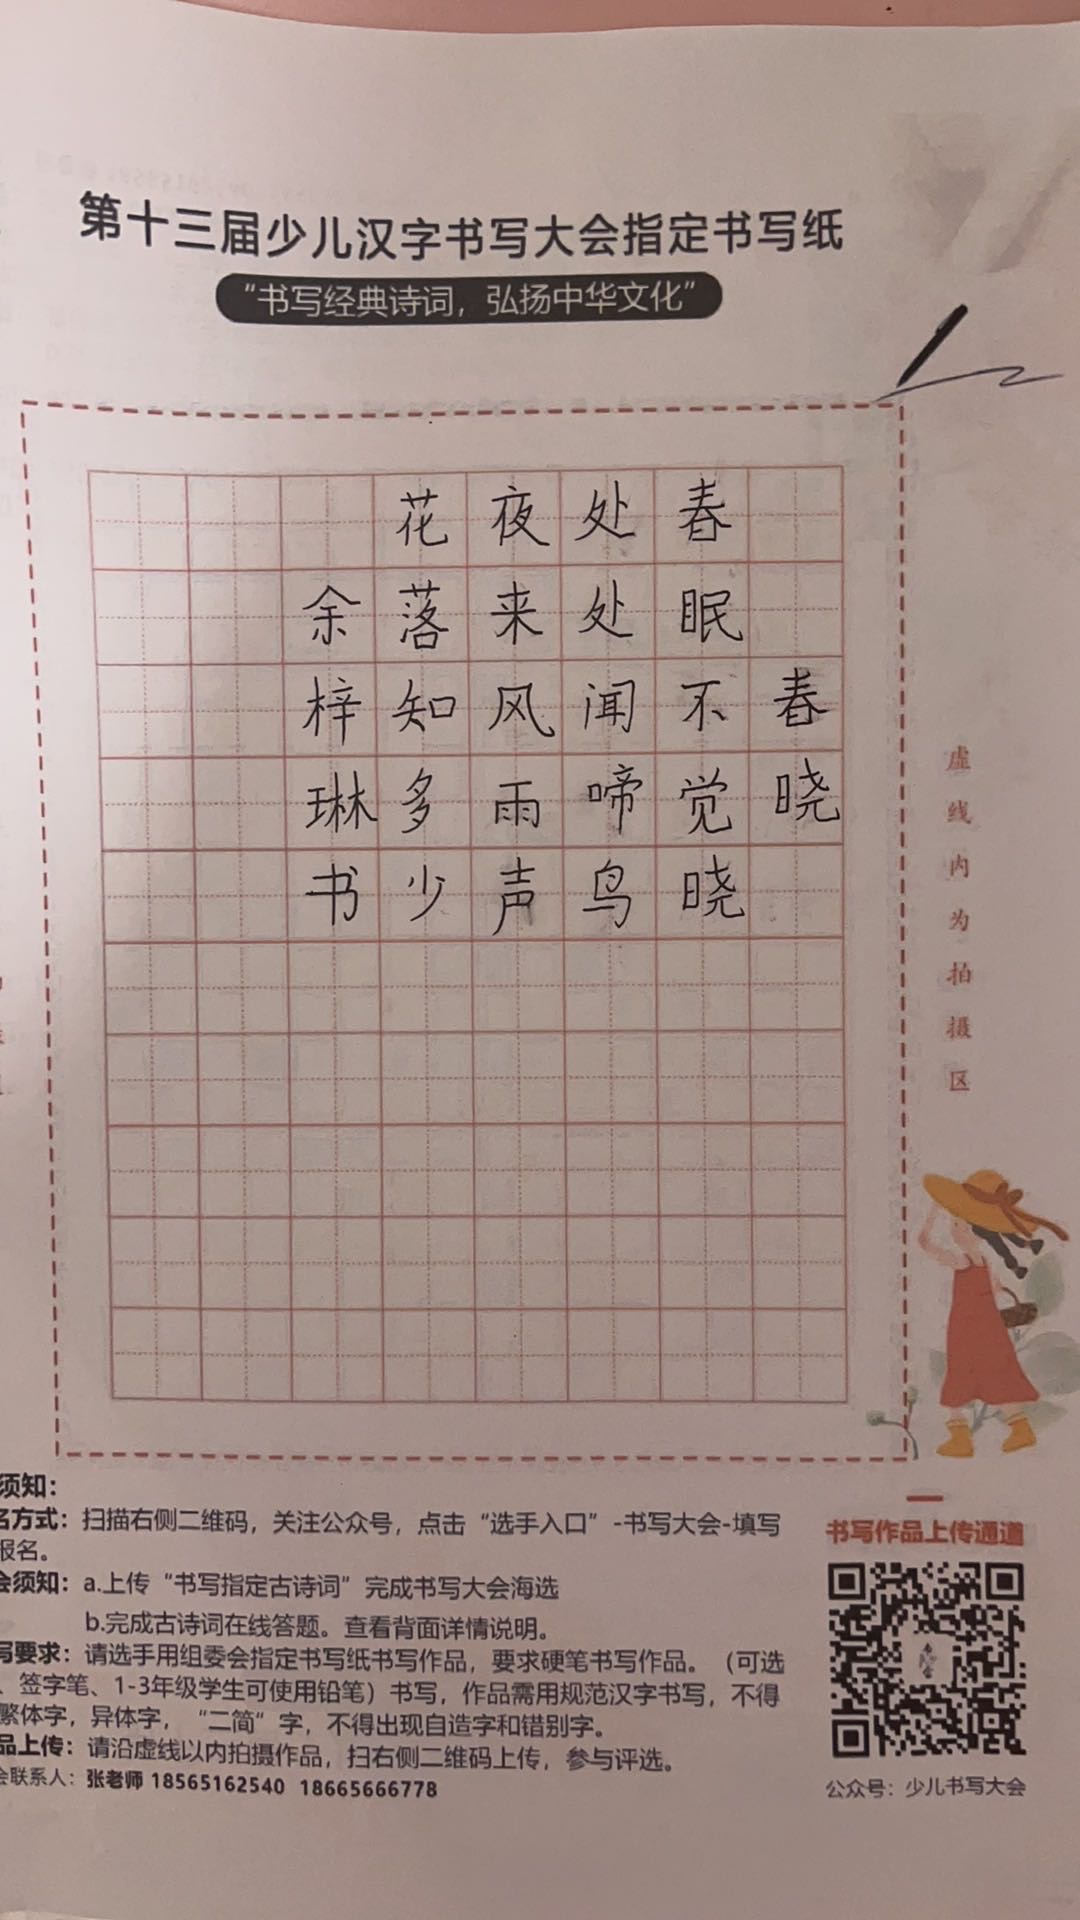 第十三届少儿汉字书写大会指定书写纸
“书写经典诗词，弘扬中华文化”
春晓
春眠不觉晓
处处闻啼鸟
夜来风雨声
花落知多少
余梓琳书
虚线内为拍摄区
须知：
名方式：扫描右侧二维码，关注公众号，点击“选手入口”-书写大会-填写
报名。
会须知：a.上传“书写指定古诗词”完成书写大会海选
b.完成古诗词在线答题。查看背面详情说明。
写要求：请选手用组委会指定书写纸书写作品，要求硬笔书写作品。（可选
、签字笔、1-3年级学生可使用铅笔）书写，作品需用规范汉字书写，不得
繁体字，异体字，“二简”字，不得出现自造字和错别字。
品上传：请沿虚线以内拍摄作品，扫右侧二维码上传，参与评选。
会联系人：张老师 18565162540 18665666778
书写作品上传通道
公众号：少儿书写大会